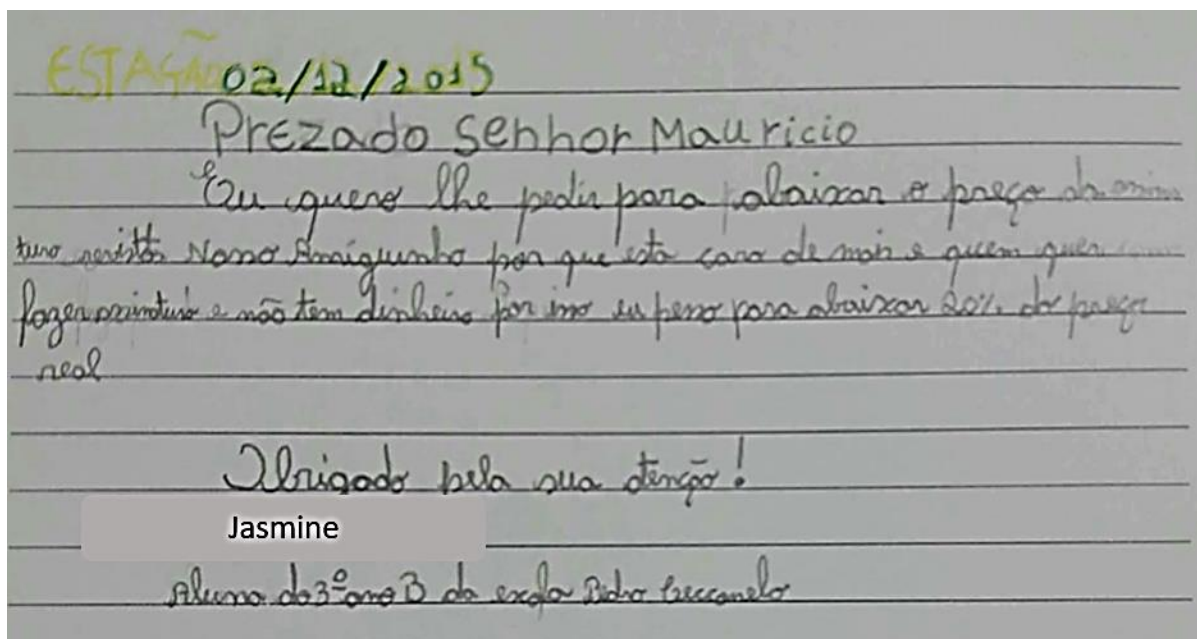 ESTAÇÃO 02/12/2015
Prezado Senhor Mauricio
Eu quero lhe pedir para abaixar o preço da
revista Nosso Amiguinho por que esta caro de mais e quem quer
fazer e não tem dinheiro por isso eu peso para abaixar 20% do preço
real
Obrigado pela sua tenção!
Jasmine
Aluna do 3º ano B da escola Pedro